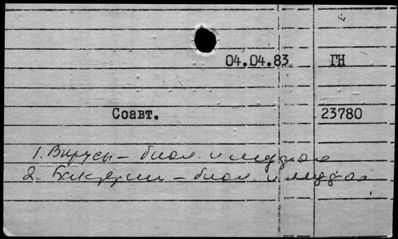 04.04.83 ГН
Соавт. 23780
1. Вирусы – биол. и
2. Бактерии – биол. и